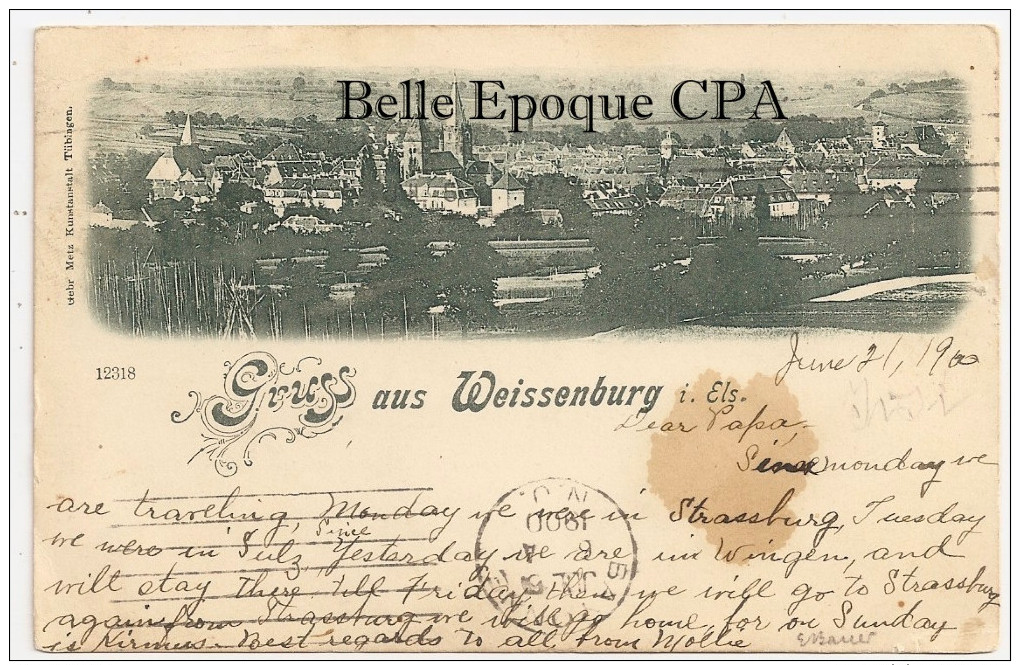 Belle Epoque CPA
Gebr Metz Kunstanstalt Tübingen.
12318
Gruss aus Weissenburg i. Els.
June 21, 1900
Dear Papa,
Since monday we
are traveling, Monday we were in Strassburg, Tuesday
Since
we were in Sulz, Yesterday we are in Wingen, and
will stay there till Friday then we will go to Strassburg
again from Strassburg we will go home, for on Sunday
is Kirmus. Best regards to all from Mollie
E Bauer
N.O.
1900